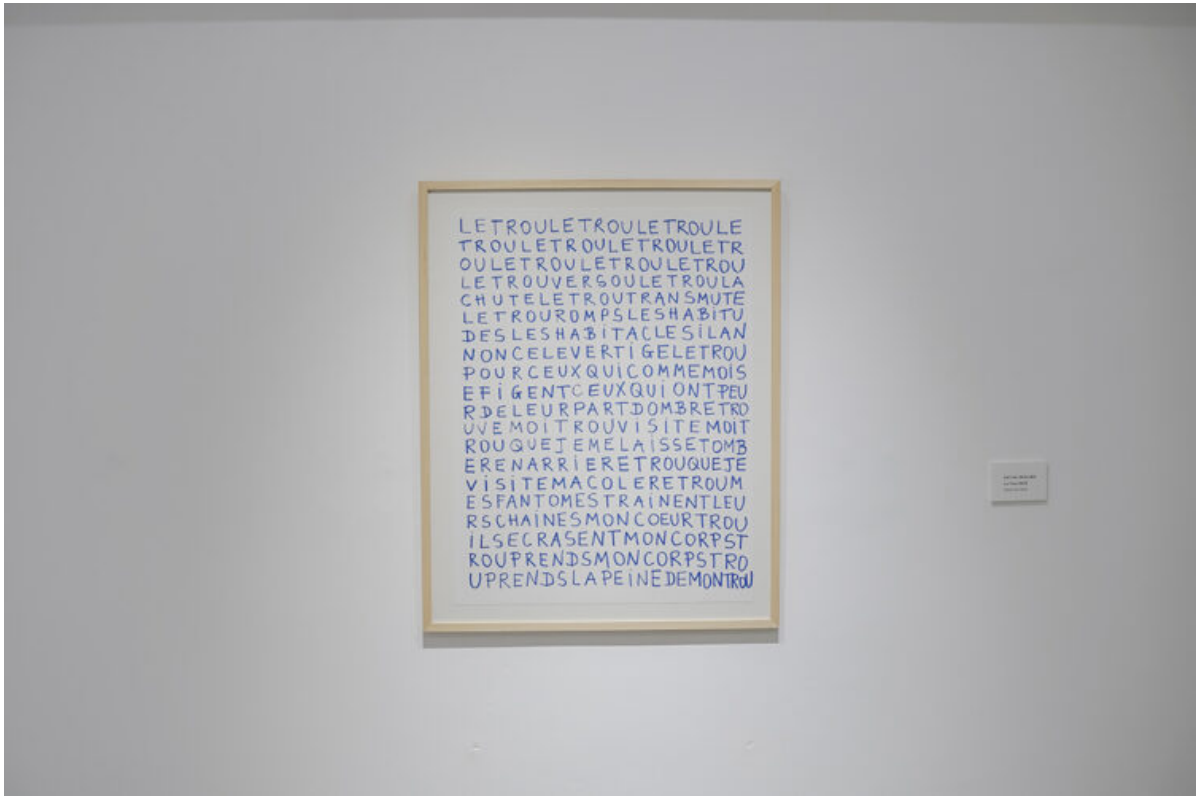 LETROULETROULETROULE
TROULETROULETROULETR
OULETROULETROULETROU
LETROUVERSOULETROULA
CHUTELETROUTRANSMUTE
LETROUROMPSLESHABiTU
DESLESHABiTACLESiLAN
NONCELEVERTiGELETROU
POURCEUXQUiCOMMEMOiS
EFiGENTCEUXQUiONTPEU
RDELEURPARTDOMBRETRO
UVEMOiTROUViSiTEMOiT
ROUQUEJEMELAiSSETOMB
ERENARRiERETROUQUEJE
ViSiTEMACOLERETROUM
ESFANTOMESTRAiNENTLEU
RSCHAiNESMONCOEURTROU
iLSECRASENTMONCORPST
ROUPRENDSMONCORPSTRO
UPRENDSLAPEiNEDEMONTROU